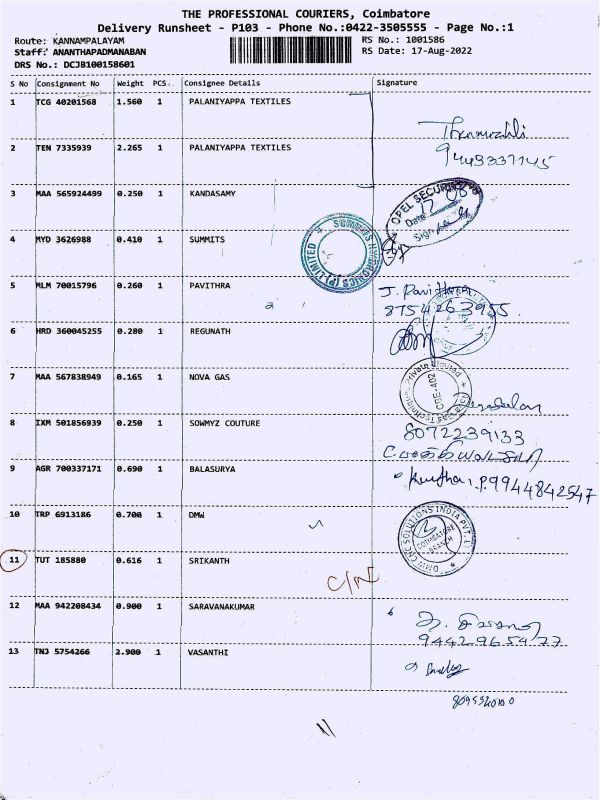 THE PROFESSIONAL COURIERS, Coimbatore
Delivery Runsheet - P103 - Phone No.:0422-3505555 - Page No.:1
Route: KANNAMPALAYAM RS No.: 1001586
Staff: ANANTHAPADMANABAN RS Date: 17-Aug-2022
DRS No.: DCJB100158601
S No Consignment No Weight PCS. Consignee Details Signature
1 TCG 40201568 1.560 1 PALANIYAPPA TEXTILES
2 TEN 7335939 2.265 1 PALANIYAPPA TEXTILES
3 MAA 565924499 0.250 1 KANDASAMY
OPEL SECURITY
Date
Sign
4 MYD 3626988 0.410 1 SUMMITS
(P) LIMITED
5 MLM 70015796 0.260 1 PAVITHRA
J. Pavithra
8754263955
6 HRD 360045255 0.280 1 REGUNATH
7 MAA 567838949 0.165 1 NOVA GAS
Private Limited
CBE-402
8 IXM 501856939 0.250 1 SOWMYZ COUTURE
8072239133
9 AGR 700337171 0.690 1 BALASURYA
P. 9944842547
10 TRP 6913186 0.700 1 DMW
DMW CNC SOLUTIONS INDIA PVT. LTD
COIMBATORE
BRANCH
11 TUT 185880 0.616 1 SRIKANTH
C/N
12 MAA 942208434 0.900 1 SARAVANAKUMAR
13 TNJ 5754266 2.900 1 VASANTHI